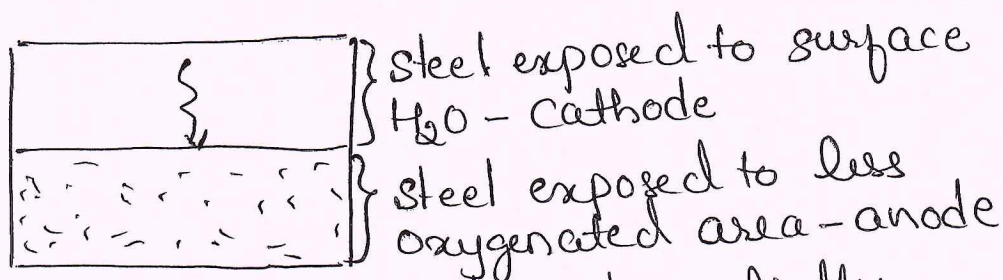 steel exposed to surface
H₂O - Cathode
steel exposed to less
oxygenated area - anode